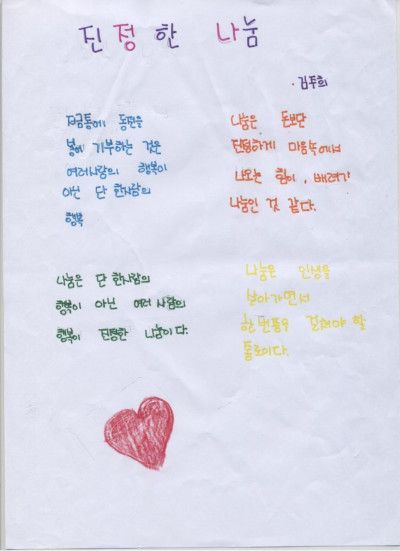 진정한 나눔
· 김주희
저금통에 동전을
기부하는 것은
여러사람의 행복이
아닌 단 한사람의
행복
나눔은 돈보단
마음속에서
나오는 힘이, 배려가
나눔인 것 같다.
나눔은 단 한사람의
행복이 아닌 여러 사람의
행복이 진정한 나눔이다.
나눔은 인생을
살아가면서
한 할
통로이다.